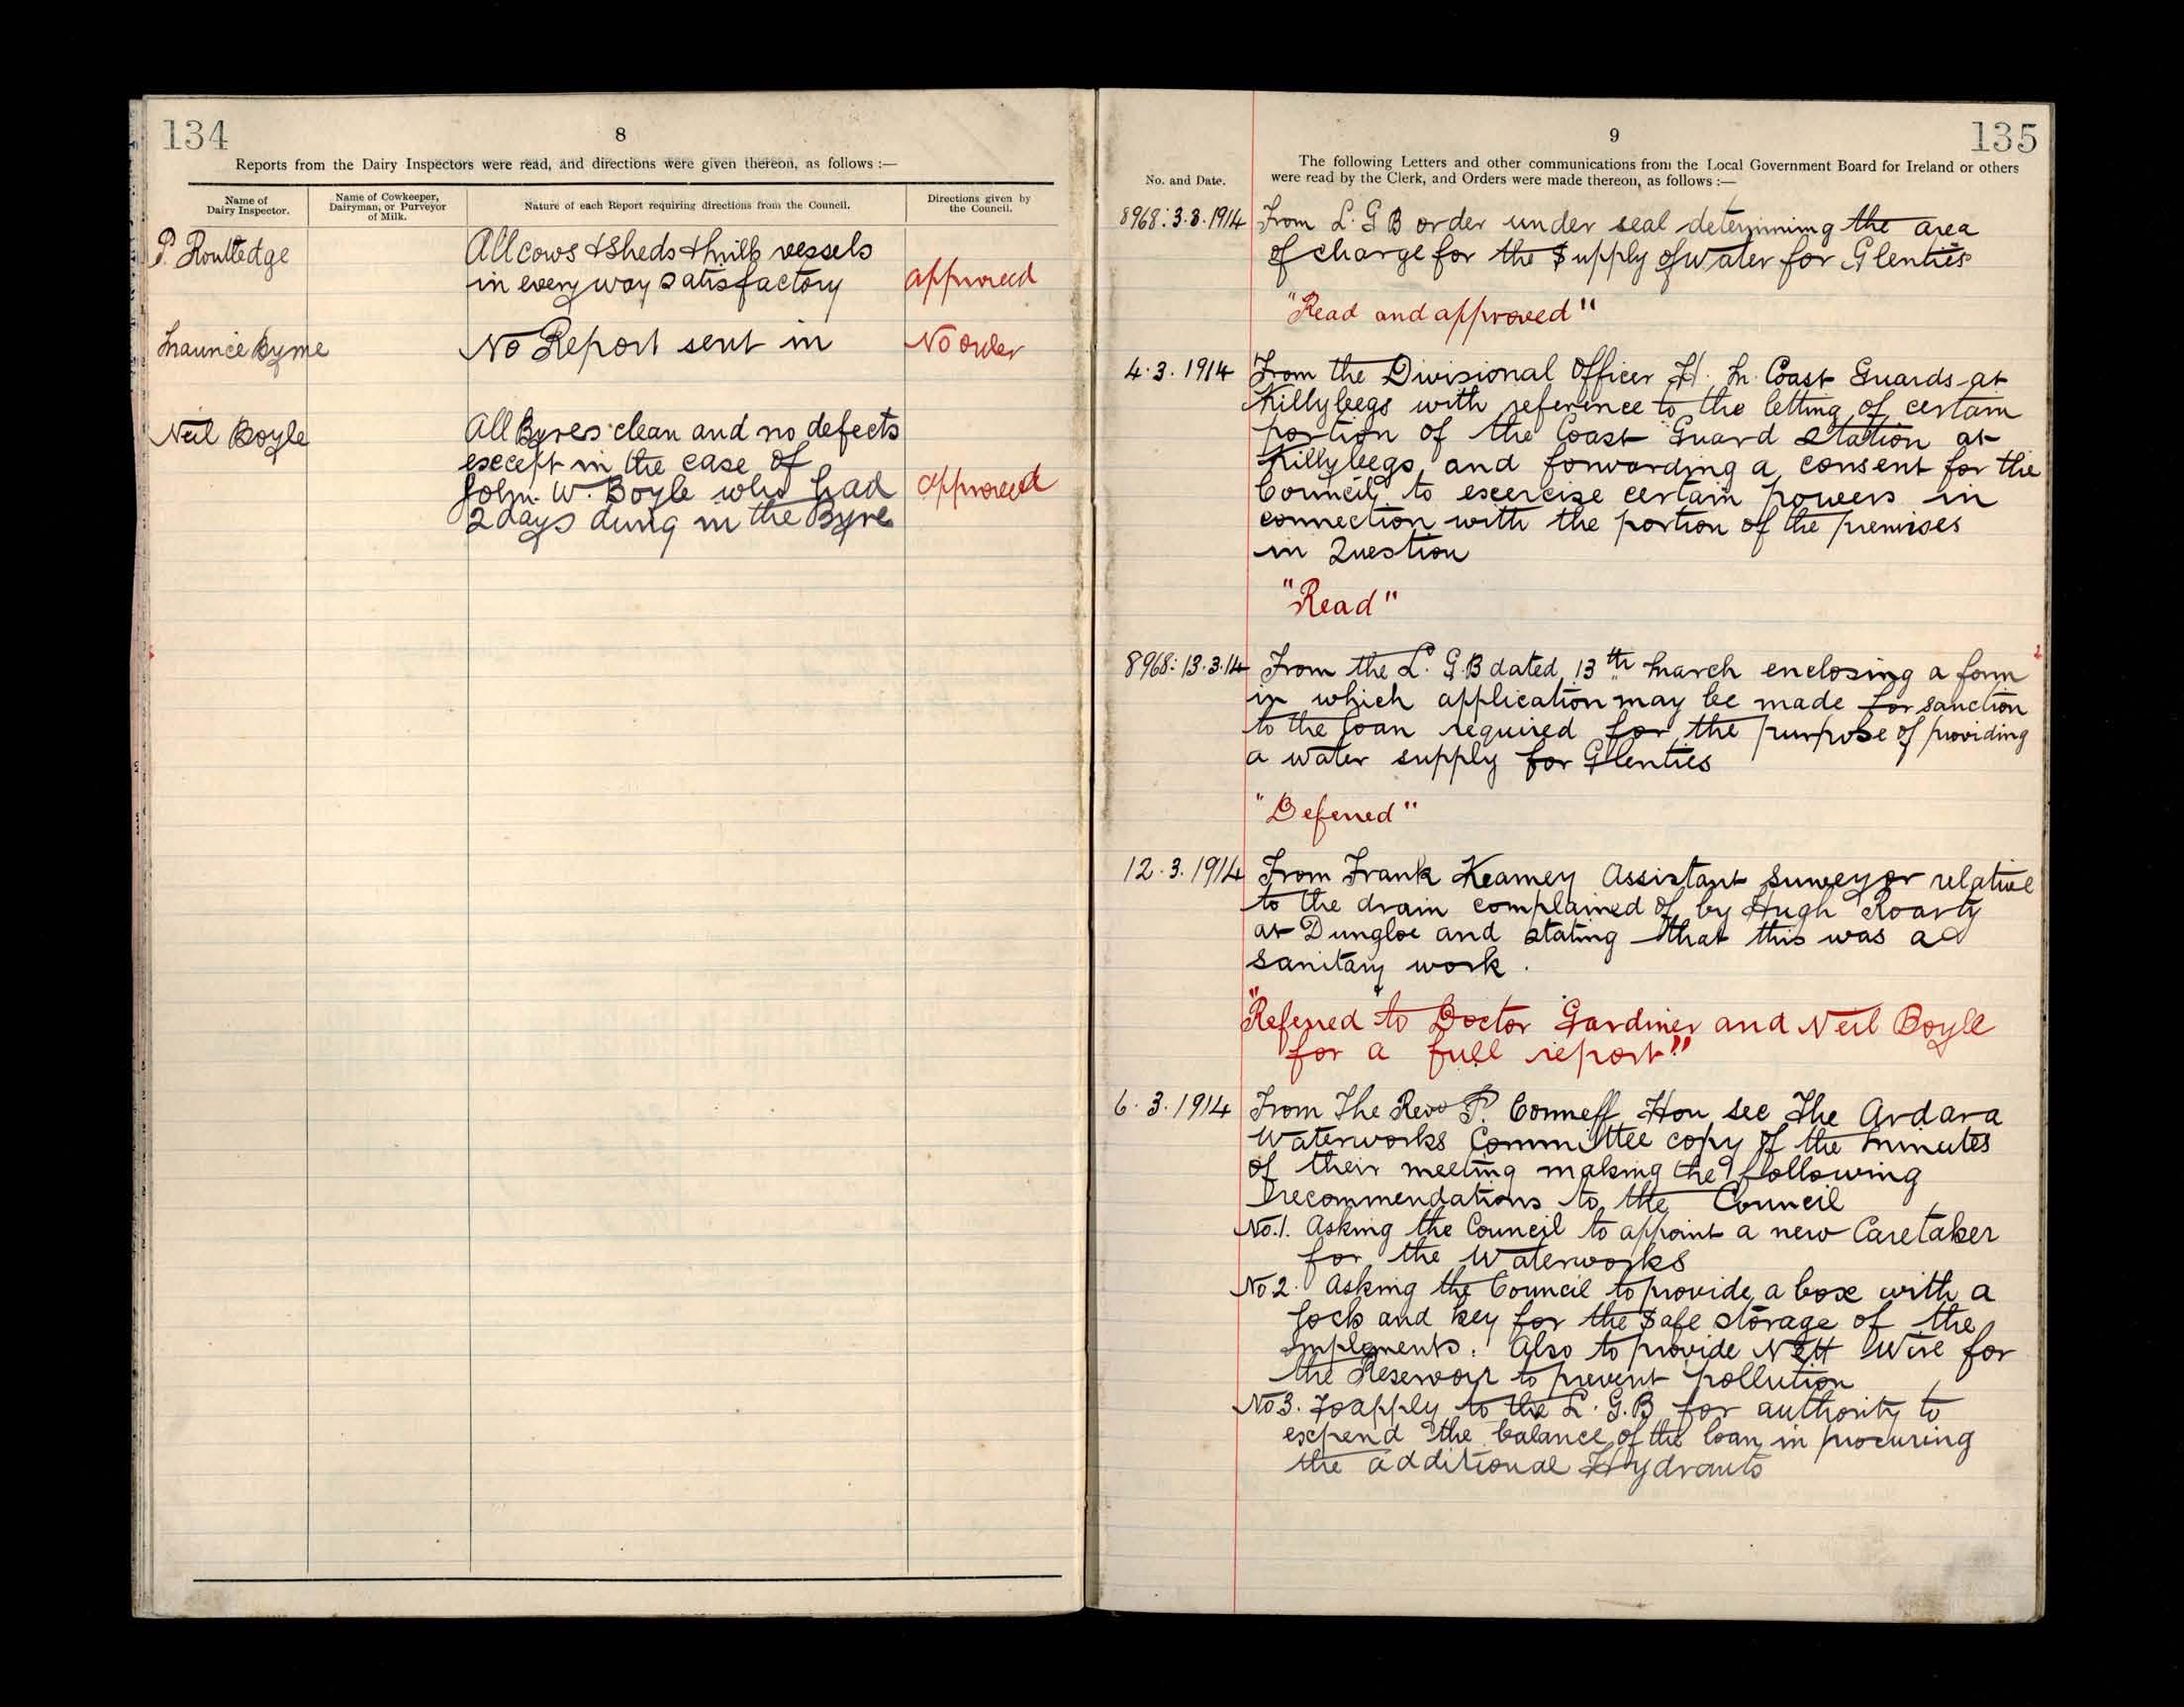 134
8
Reports from the Dairy Inspectors were read, and directions were given thereon, as follows :—
Name of Dairy Inspector.
Name of Cowkeeper, Dairyman, or Purveyor of Milk.
Nature of each Report requiring directions from the Council.
Directions given by the Council.
P. Routledge
All cows & sheds & milk vessels
in every way satisfactory
approved
Maurice Byrne
No Report sent in
No order
Neil Boyle
All Byres clean and no defects
except in the case of
John W. Boyle who had
2 days dung in the Byre
approved
9
135
No. and Date.
The following Letters and other communications from the Local Government Board for Ireland or others
were read by the Clerk, and Orders were made thereon, as follows :—
8968: 3.3.1914 From L. G B order under seal determining the area
of charge for the Supply of water for Glenties
"Read and approved"
4.3.1914 From the Divisional Officer H. M. Coast Guards at
Killybegs with reference to the letting of certain
portion of the Coast Guard Station at
Killybegs, and forwarding a consent for the
Council to exercise certain powers in
connection with the portion of the premises
in Question
"Read"
8968: 13.3.14 From the L. G.B dated 13th March enclosing a form
in which application may be made for sanction
to the loan required for the purpose of providing
a water supply for Glenties
"Deferred"
12.3.1914 From Frank Kearney Assistant Surveyor relative
to the drain complained of by Hugh Roarty
at Dungloe and stating that this was a
Sanitary work.
"Referred to Doctor Gardiner and Neil Boyle
for a full report"
6.3.1914 From The Revd P. Conneff Hon Sec The Ardara
Waterworks Committee copy of the minutes
of their meeting making the following
recommendations to the Council
No.1. Asking the Council to appoint a new Caretaker
for the Waterworks
No 2. Asking the Council to provide a box with a
lock and key for the Safe storage of the
implements. Also to provide Nett Wire for
the Reservoir to prevent pollution
No 3. To apply to the L. G.B for authority to
expend the balance of the loan in procuring
the additional Hydrants